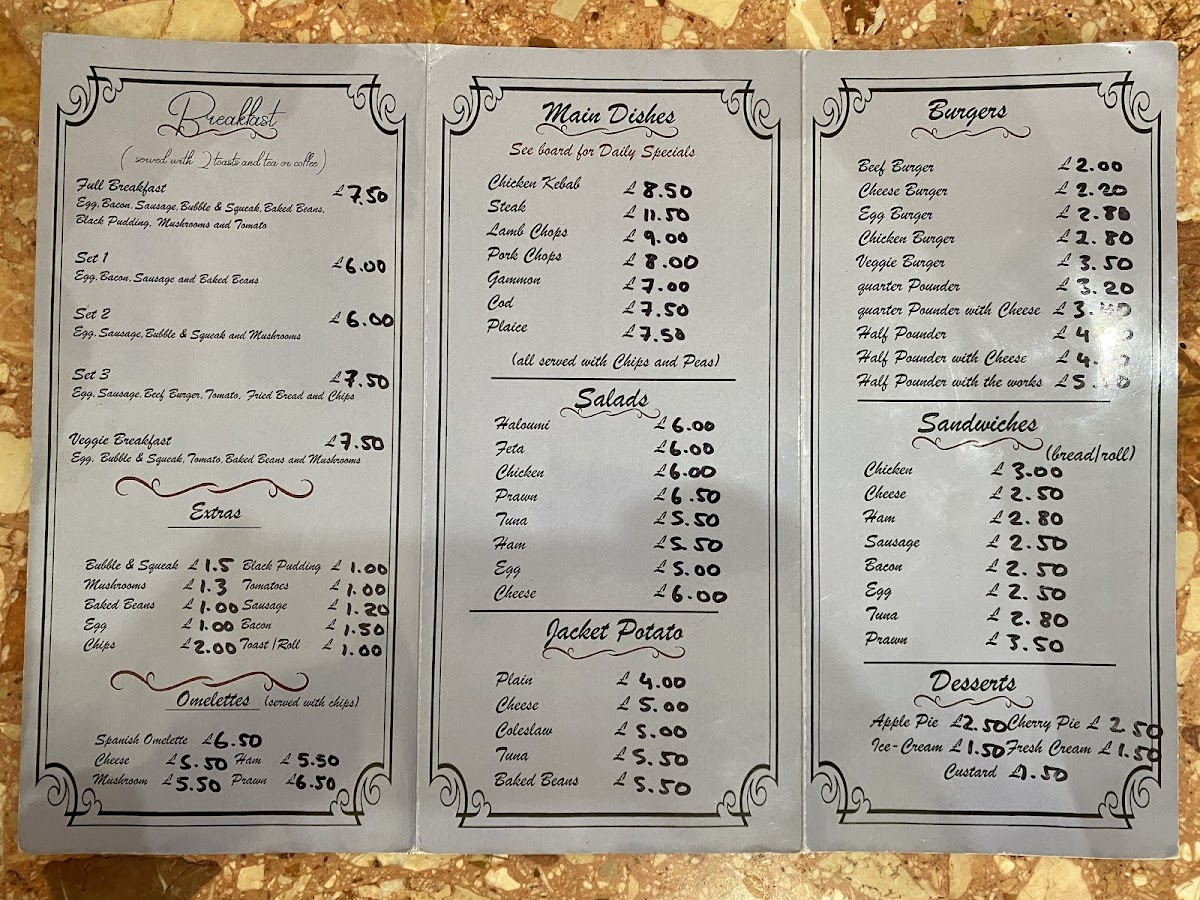 Breakfast
( served with 2 toasts and tea or coffee)
Full Breakfast £7.50
Egg, Bacon, Sausage, Bubble & Squeak, Baked Beans,
Black Pudding, Mushrooms and Tomato
Set 1 £6.00
Egg, Bacon, Sausage and Baked Beans
Set 2 £6.00
Egg, Sausage, Bubble & Squeak and Mushrooms
Set 3 £7.50
Egg, Sausage, Beef Burger, Tomato, Fried Bread and Chips
Veggie Breakfast £7.50
Egg, Bubble & Squeak, Tomato, Baked Beans and Mushrooms
Extras
Bubble & Squeak £1.5 Black Pudding £1.00
Mushrooms £1.3 Tomatoes £1.00
Baked Beans £1.00 Sausage £1.20
Egg £1.00 Bacon £1.50
Chips £2.00 Toast/Roll £1.00
Omelettes (served with chips)
Spanish Omelette £6.50
Cheese £5.50 Ham £5.50
Mushroom £5.50 Prawn £6.50
Main Dishes
See board for Daily Specials
Chicken Kebab £8.50
Steak £11.50
Lamb Chops £9.00
Pork Chops £8.00
Gammon £7.00
Cod £7.50
Plaice £7.50
(all served with Chips and Peas)
Salads
Haloumi £6.00
Feta £6.00
Chicken £6.00
Prawn £6.50
Tuna £5.50
Ham £5.50
Egg £5.00
Cheese £6.00
Jacket Potato
Plain £4.00
Cheese £5.00
Coleslaw £5.00
Tuna £5.50
Baked Beans £5.50
Burgers
Beef Burger £2.00
Cheese Burger £2.20
Egg Burger £2.80
Chicken Burger £2.80
Veggie Burger £3.50
quarter Pounder £3.20
quarter Pounder with Cheese
Half Pounder
Half Pounder with Cheese
Half Pounder with the works
Sandwiches
(bread/roll)
Chicken £3.00
Cheese £2.50
Ham £2.80
Sausage £2.50
Bacon £2.50
Egg £2.50
Tuna £2.80
Prawn £3.50
Desserts
Apple Pie £2.50 Cherry Pie £2.50
Ice-Cream £1.50 Fresh Cream £1.50
Custard £1.50